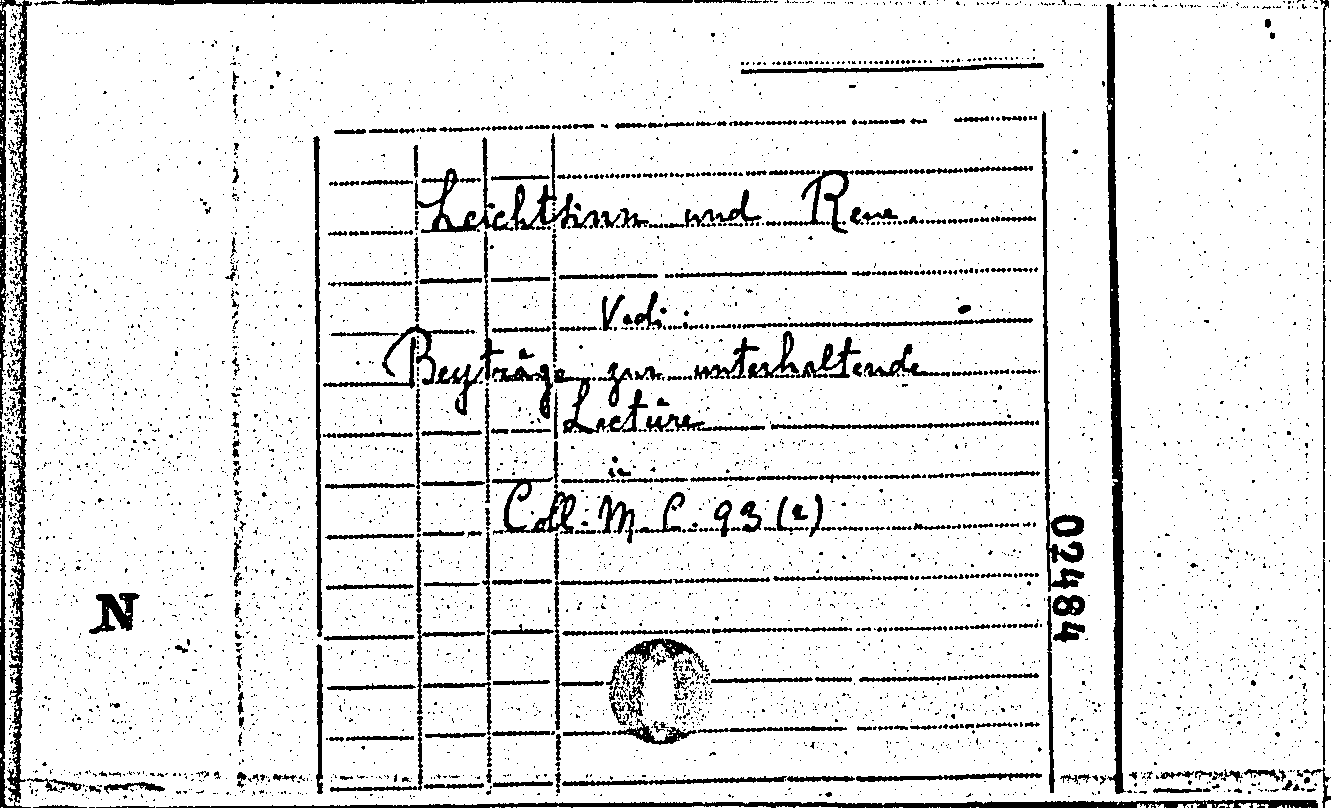 Leichtsinn und Reue.
Vedi:
Beyträge zur unterhaltende
Lectüre
in
Coll. M. C. 93 (2)
02484
N